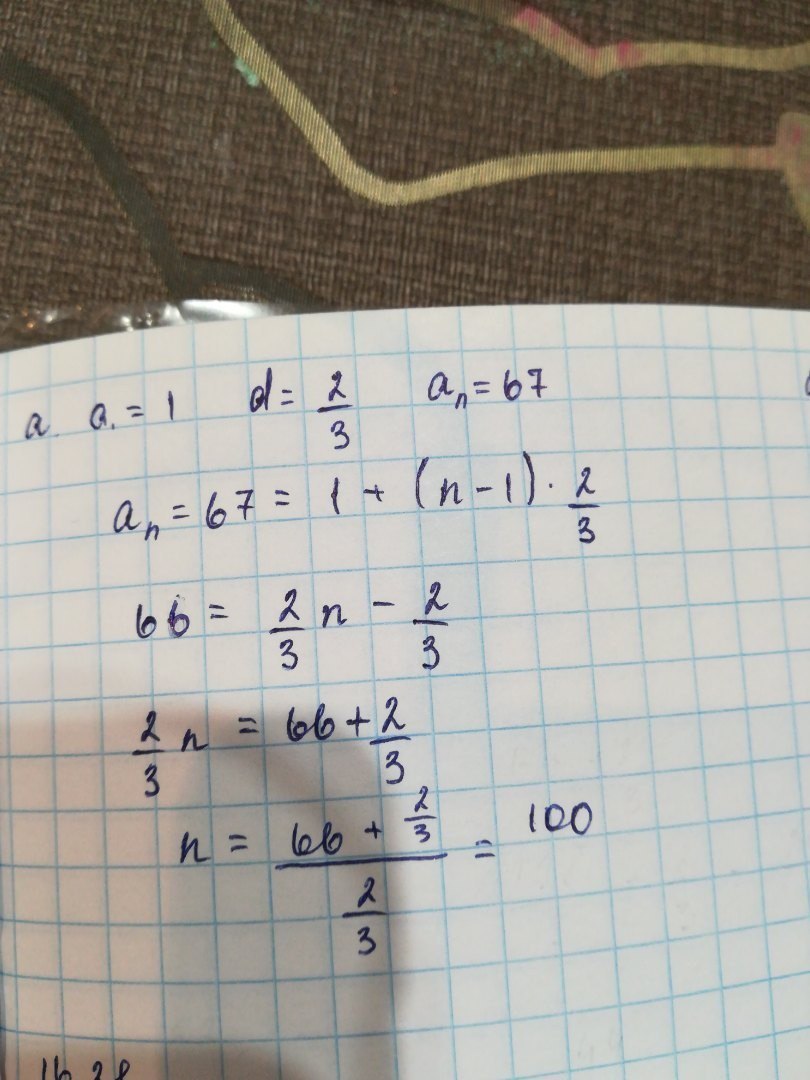 a. a₁ = 1 d = 2/3 aₙ = 67
aₙ = 67 = 1 + (n - 1) · 2/3
66 = 2/3 n - 2/3
2/3 n = 66 + 2/3
n = (66 + 2/3) / (2/3) = 100